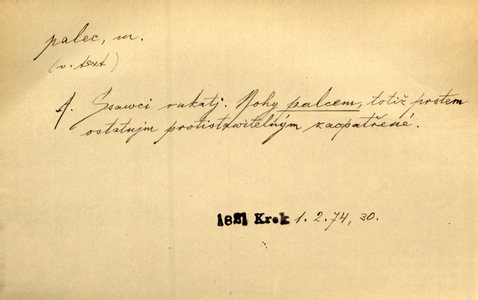 palec, m.
(v. text)
A. Ssawci rukatj. Nohy palcem, totiž prstem
ostatnjm protistawitelným zaopatřené.
1821 Krok 1.2.74, 30.